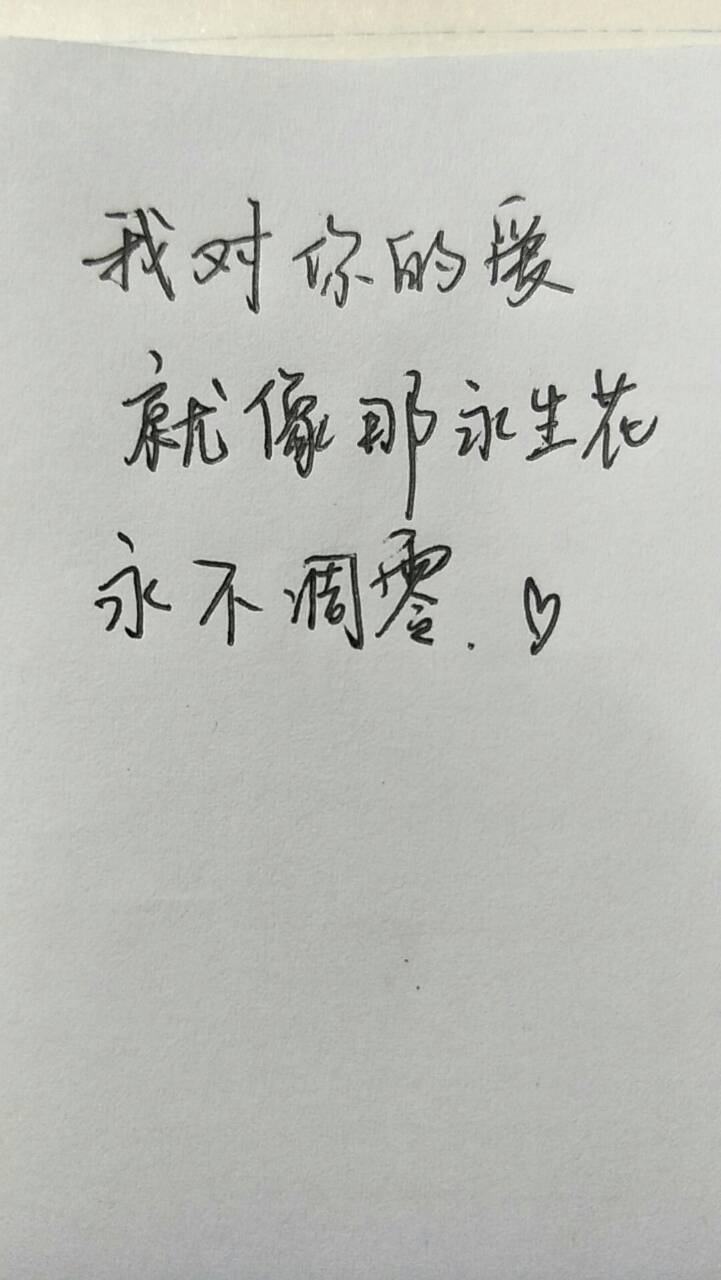 我对你的爱
就像那永生花
永不凋零.♡